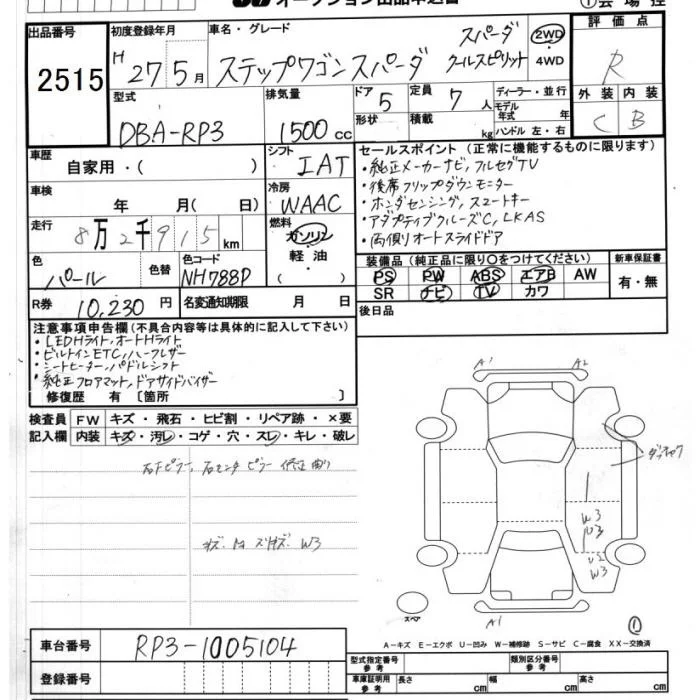 オークション出品申込書
①会場控
出品番号 2515
初度登録年月 H 27 5月
車名・グレード ステップワゴンスパーダ スパーダ クールスピリット
2WD ・ 4WD
評価点 R
外装 内装
C B
型式 DBA-RP3
排気量 1500 cc
ドア 5
形状
定員 7 人
積載 kg
ディーラー・並行
モデル年式 年
ハンドル 左・右
車歴 自家用・( )
シフト IAT
車検 年 月( 日)
冷房 WAAC
走行 8万2千915 km
燃料 ガソリン ・ 軽油 ・ ( )
色 パール 色替
色コード NH788P
R券 10,230 円
名変通知期限 月 日
セールスポイント (正常に機能するものに限ります)
・純正メーカーナビ, フルセグTV
・後席フリップダウンモニター
・ホンダセンシング, スマートキー
・アダプティブクルーズC, LKAS
・両側オートスライドドア
装備品 (純正品に限り○をつけてください)
PS PW ABS エアB AW
SR ナビ TV カワ
新車保証書
有・無
後日品
注意事項申告欄(不具合内容等は具体的に記入して下さい)
・LEDHライト, オートHライト
・ビルトインETC, ハーフレザー
・シートヒーター, パドルシフト
・純正フロアマット, ドアサイドバイザー
修復歴 有 [箇所 ]
検査員記入欄
FW キズ・飛石・ヒビ割・リペア跡・×要
内装 キズ・汚レ・コゲ・穴・スレ・キレ・破レ
右センターピラー 修正
W3
A1 A2
W3
U2
W3
スペア
A1
①
A-キズ E-エクボ U-凹み W-補修跡 S-サビ C-腐食 XX-交換済
車台番号 RP3-1005104
登録番号
型式指定番号 参考
類別区分番号 参考
車庫証明用 参考
長さ cm 幅 cm 高さ cm